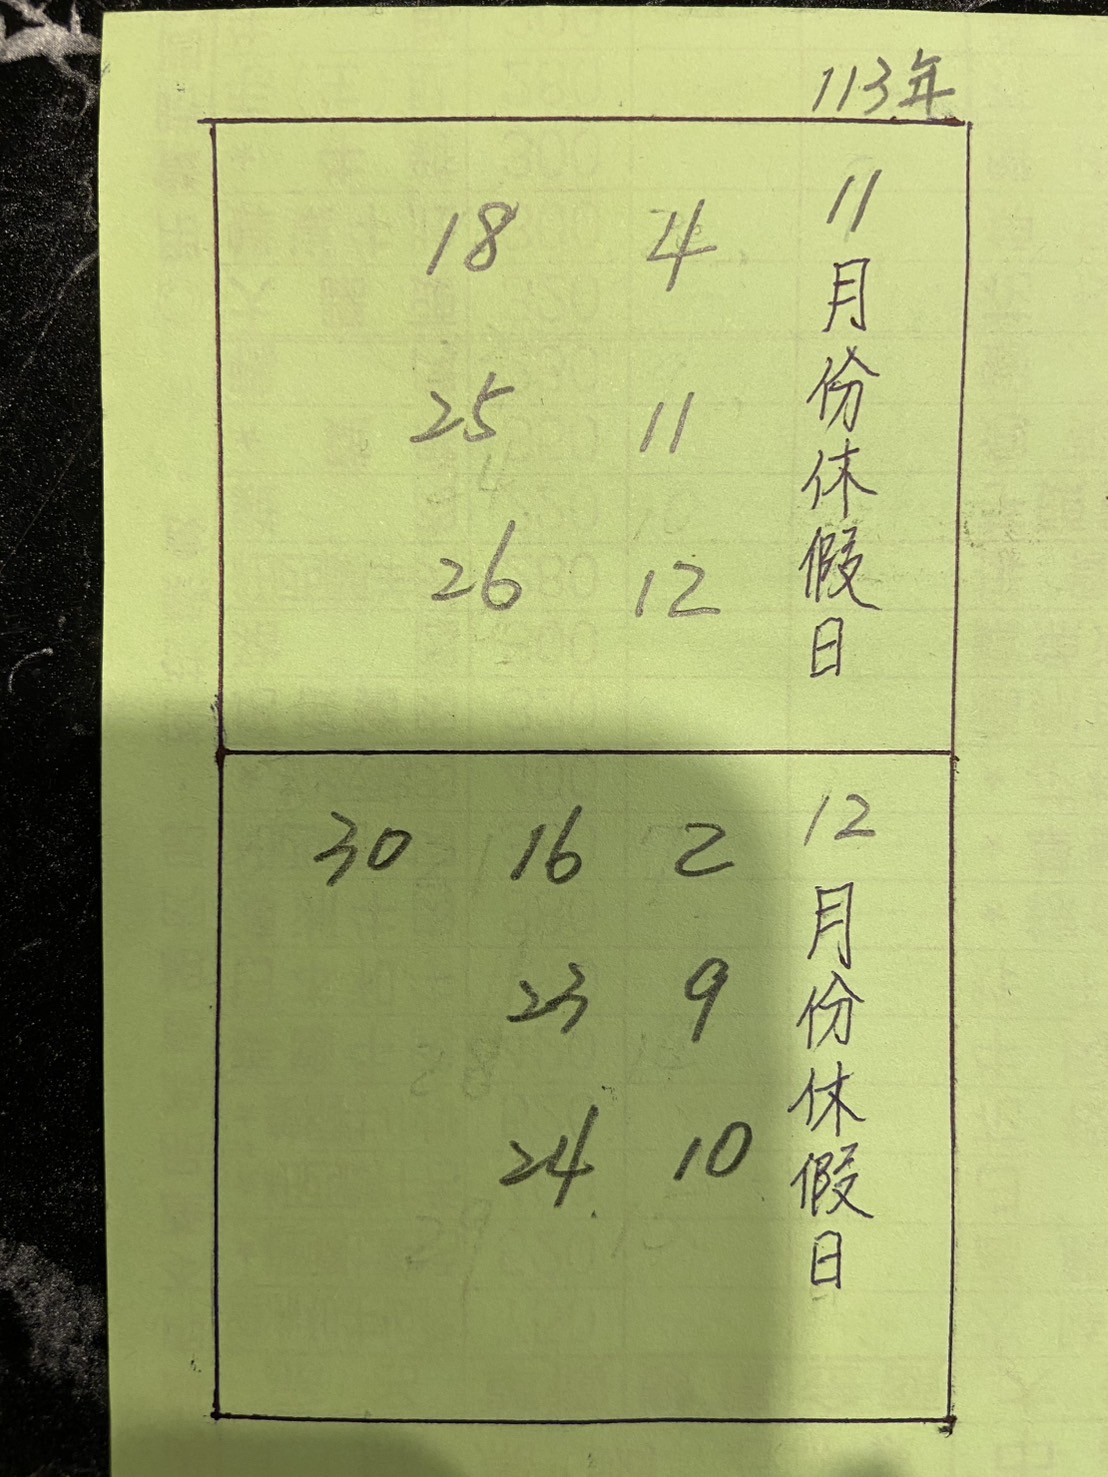 113年
11月份休假日
4
11
12
18
25
26
12月份休假日
2
9
10
16
23
24
30